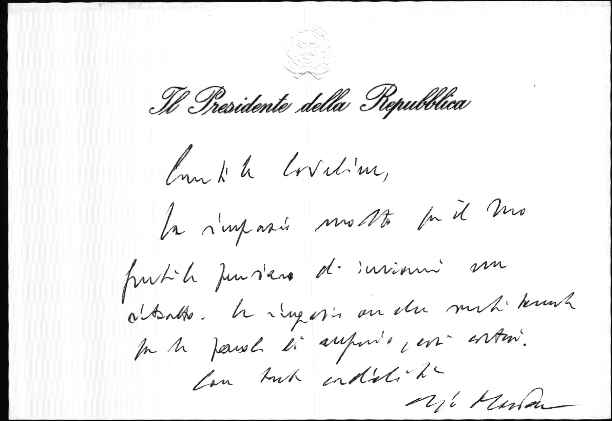 Il Presidente della Repubblica
Gentile
La ringrazio molto per il Suo
gentile pensiero di inviarmi un
ritratto. La ringrazio anche sentitamente
per le parole di augurio, così cortesi.
Con tutta cordialità